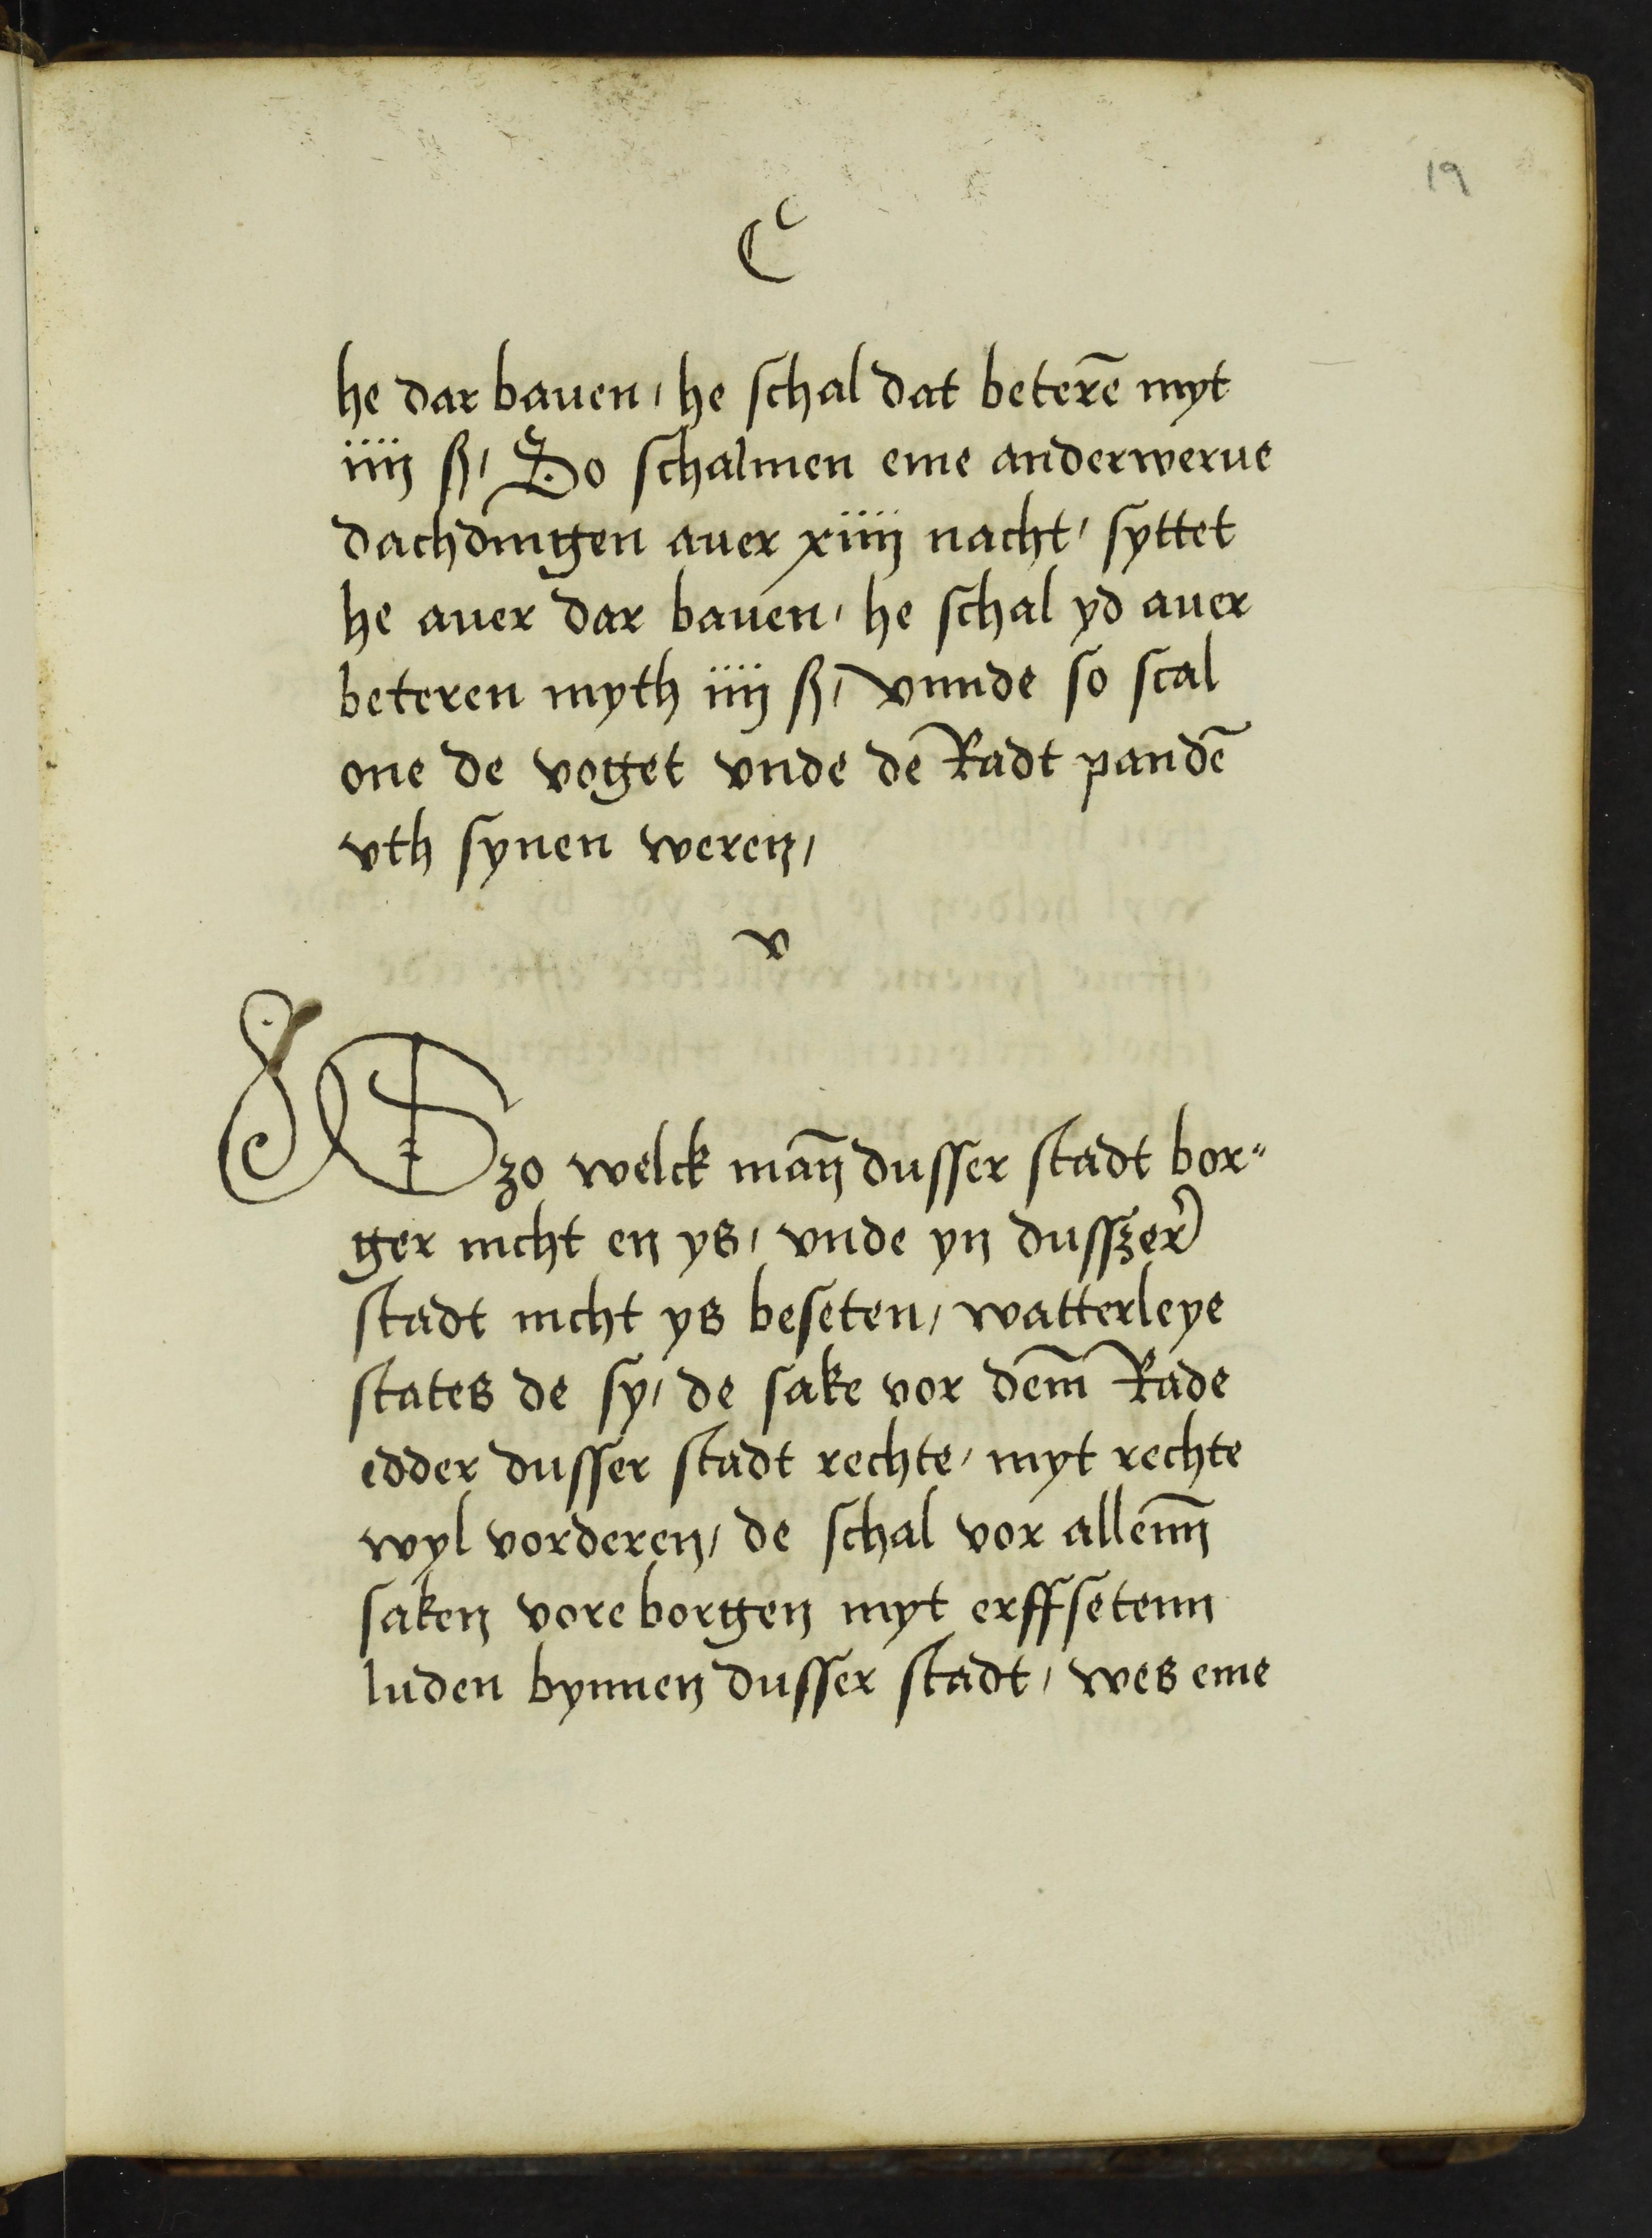 19
C
he dar bauen, he schal dat beterē myt
iiij ß, So schalmen eme anderwerue
dachdingen auer xiiij nacht, syttet
he auer dar bauen, he schal yd auer
beteren myth iiij ß, vnnde so scal
one de voget vnde de Radt pandē
vth synen weren,
v
Szo welck mañ dusser stadt bor"
ger nicht en ys, vnde yn duszer
stadt nicht ys beseten, watterleye
states de sy, de sake vor dem̄ Rade
edder dusser stadt rechte, myt rechte
wyl vorderen, de schal vor allenn̄
saken vore borgen myt erffsetenn
luden bynnen dusser stadt, wes eme